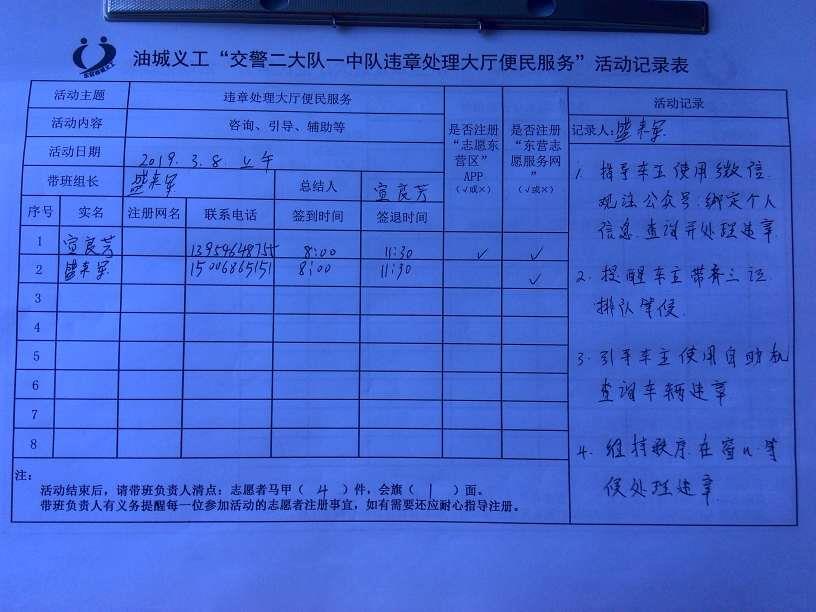 油城义工“交警二大队一中队违章处理大厅便民服务”活动记录表
活动主题 违章处理大厅便民服务
活动内容 咨询、引导、辅助等
活动日期 2019.3.8.上午
带班组长 盛来军 总结人 宣良芳
序号 实名 注册网名 联系电话 签到时间 签退时间
是否注册“志愿东营区”APP（√或×）
是否注册“东营志愿服务网”（√或×）
1 宣良芳 8:00 11:30 √ √
2 盛来军 15006865151 8:00 11:30 √
3
4
5
6
7
8
活动记录
记录人:盛来军
1. 指导车主使用微信
公众号:绑定个人
信息.查询并处理违章.
2. 提醒车主带齐三证
排队等候.
3. 引导车主使用自助机
查询车辆违章
4. 维持秩序.在窗口等
候处理违章
注：
活动结束后，请带班负责人清点：志愿者马甲（4）件，会旗（1）面。
带班负责人有义务提醒每一位参加活动的志愿者注册事宜，如有需要还应耐心指导注册。